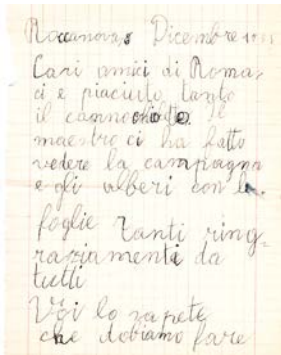 Roccanova, 8 Dicembre
Cari amici di Roma,
ci e piaciuto tanto
il Il
maestro ci ha fatto
vedere la campagna
e gli alberi con le
foglie Tanti ring-
raziamenti da
tutti
Voi lo sapete
che dobiamo fare